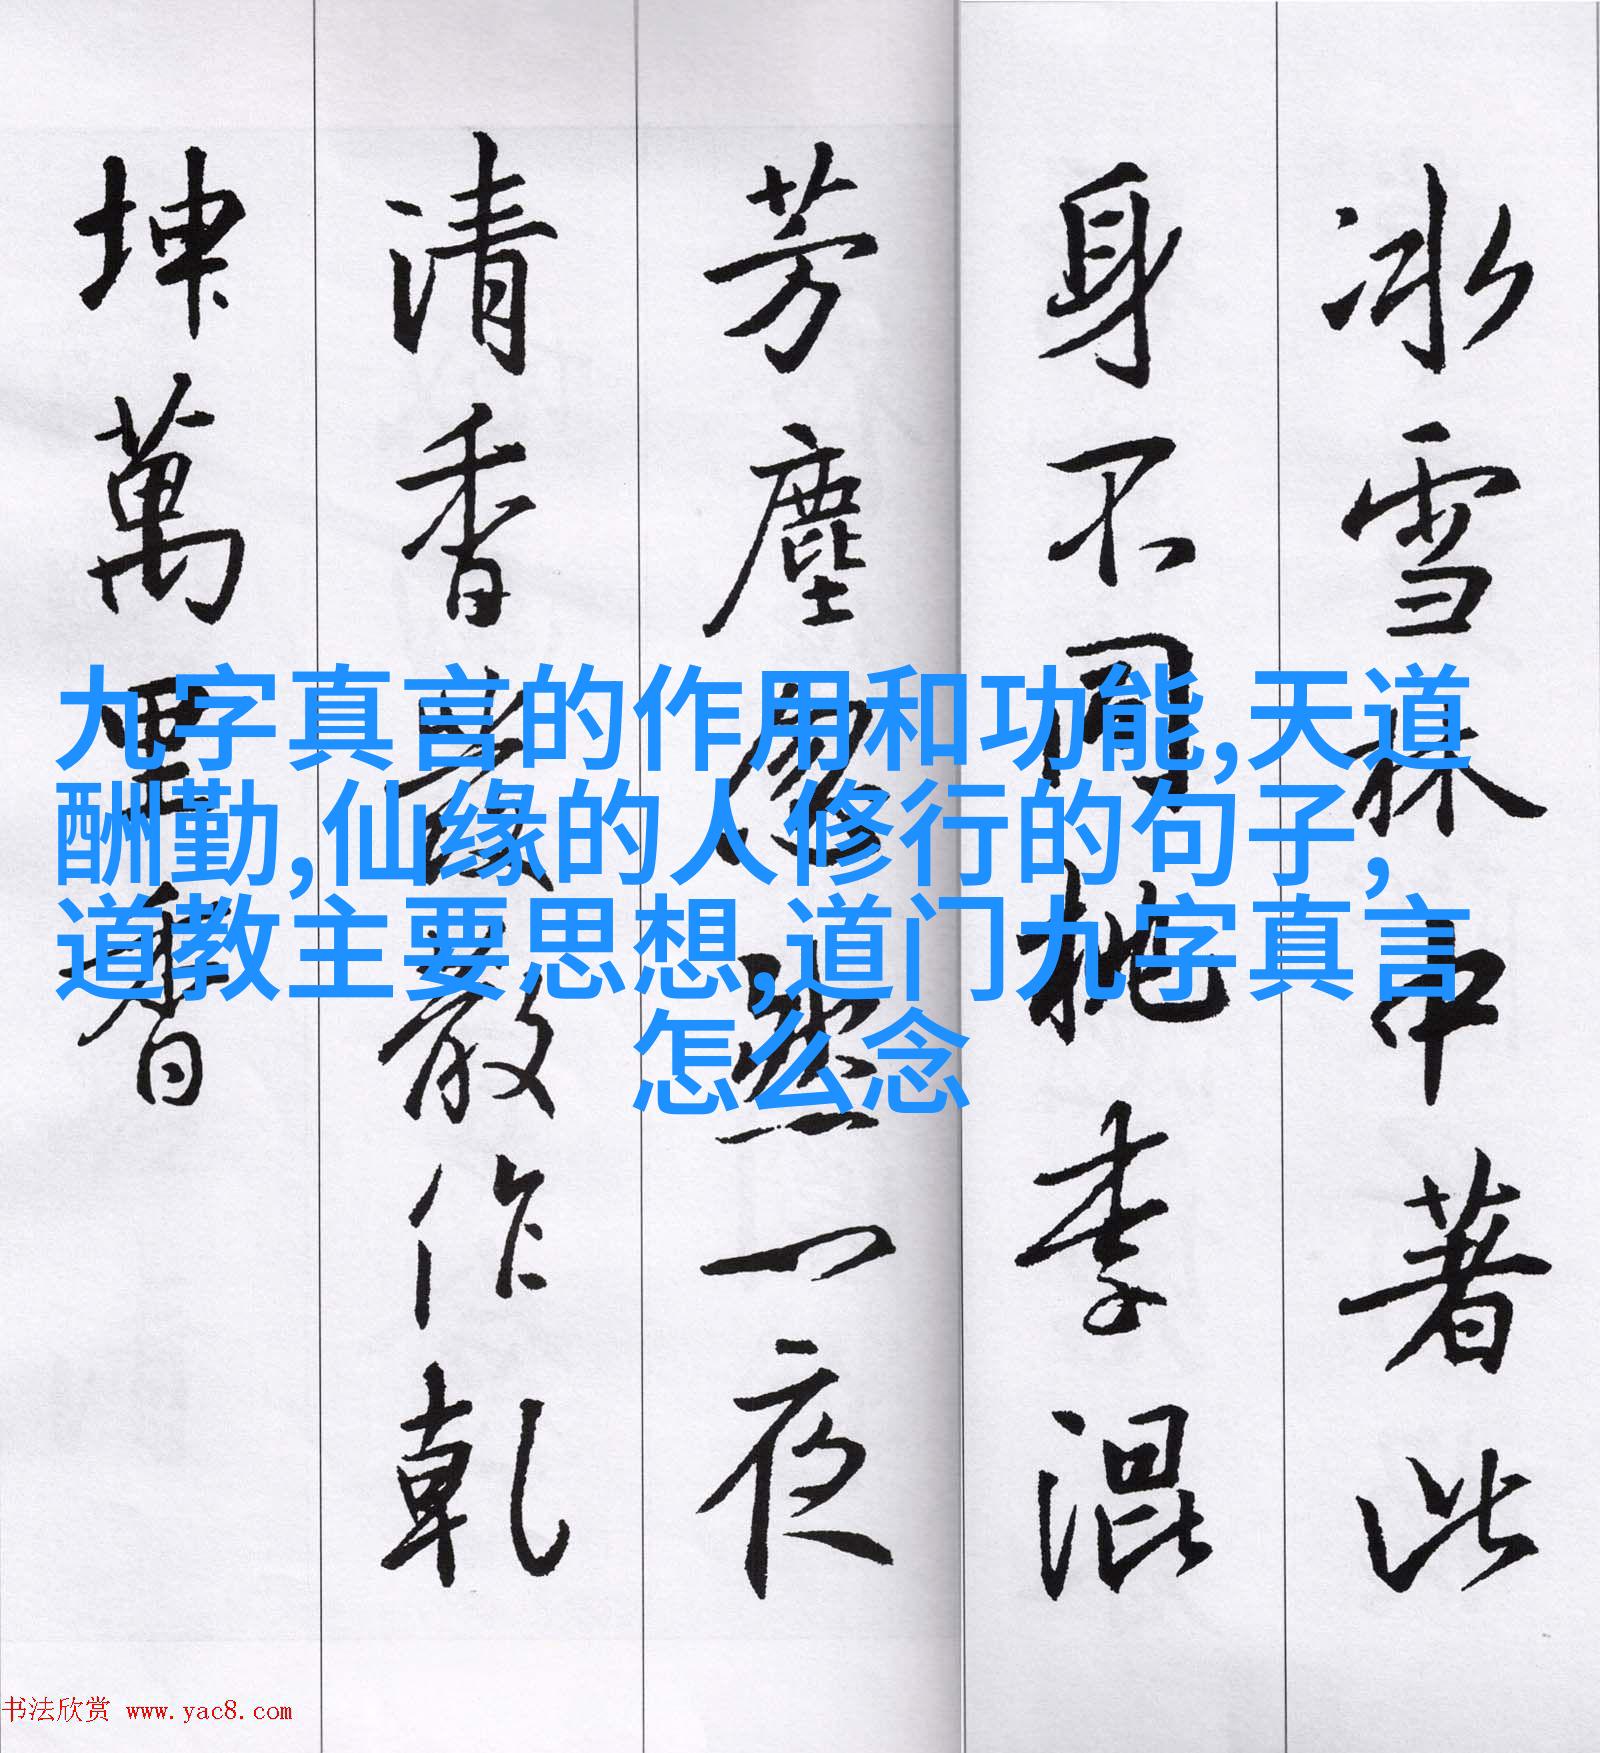 冰雪林中著此
身不同桃李混
芳塵忽然一夜
清香發散作乾
坤萬里春
九字真言的作用和功能,天道
酬勤,仙缘的人修行的句子,
道教主要思想,道门九字真言
怎么念
书法欣赏 www.yac8.com